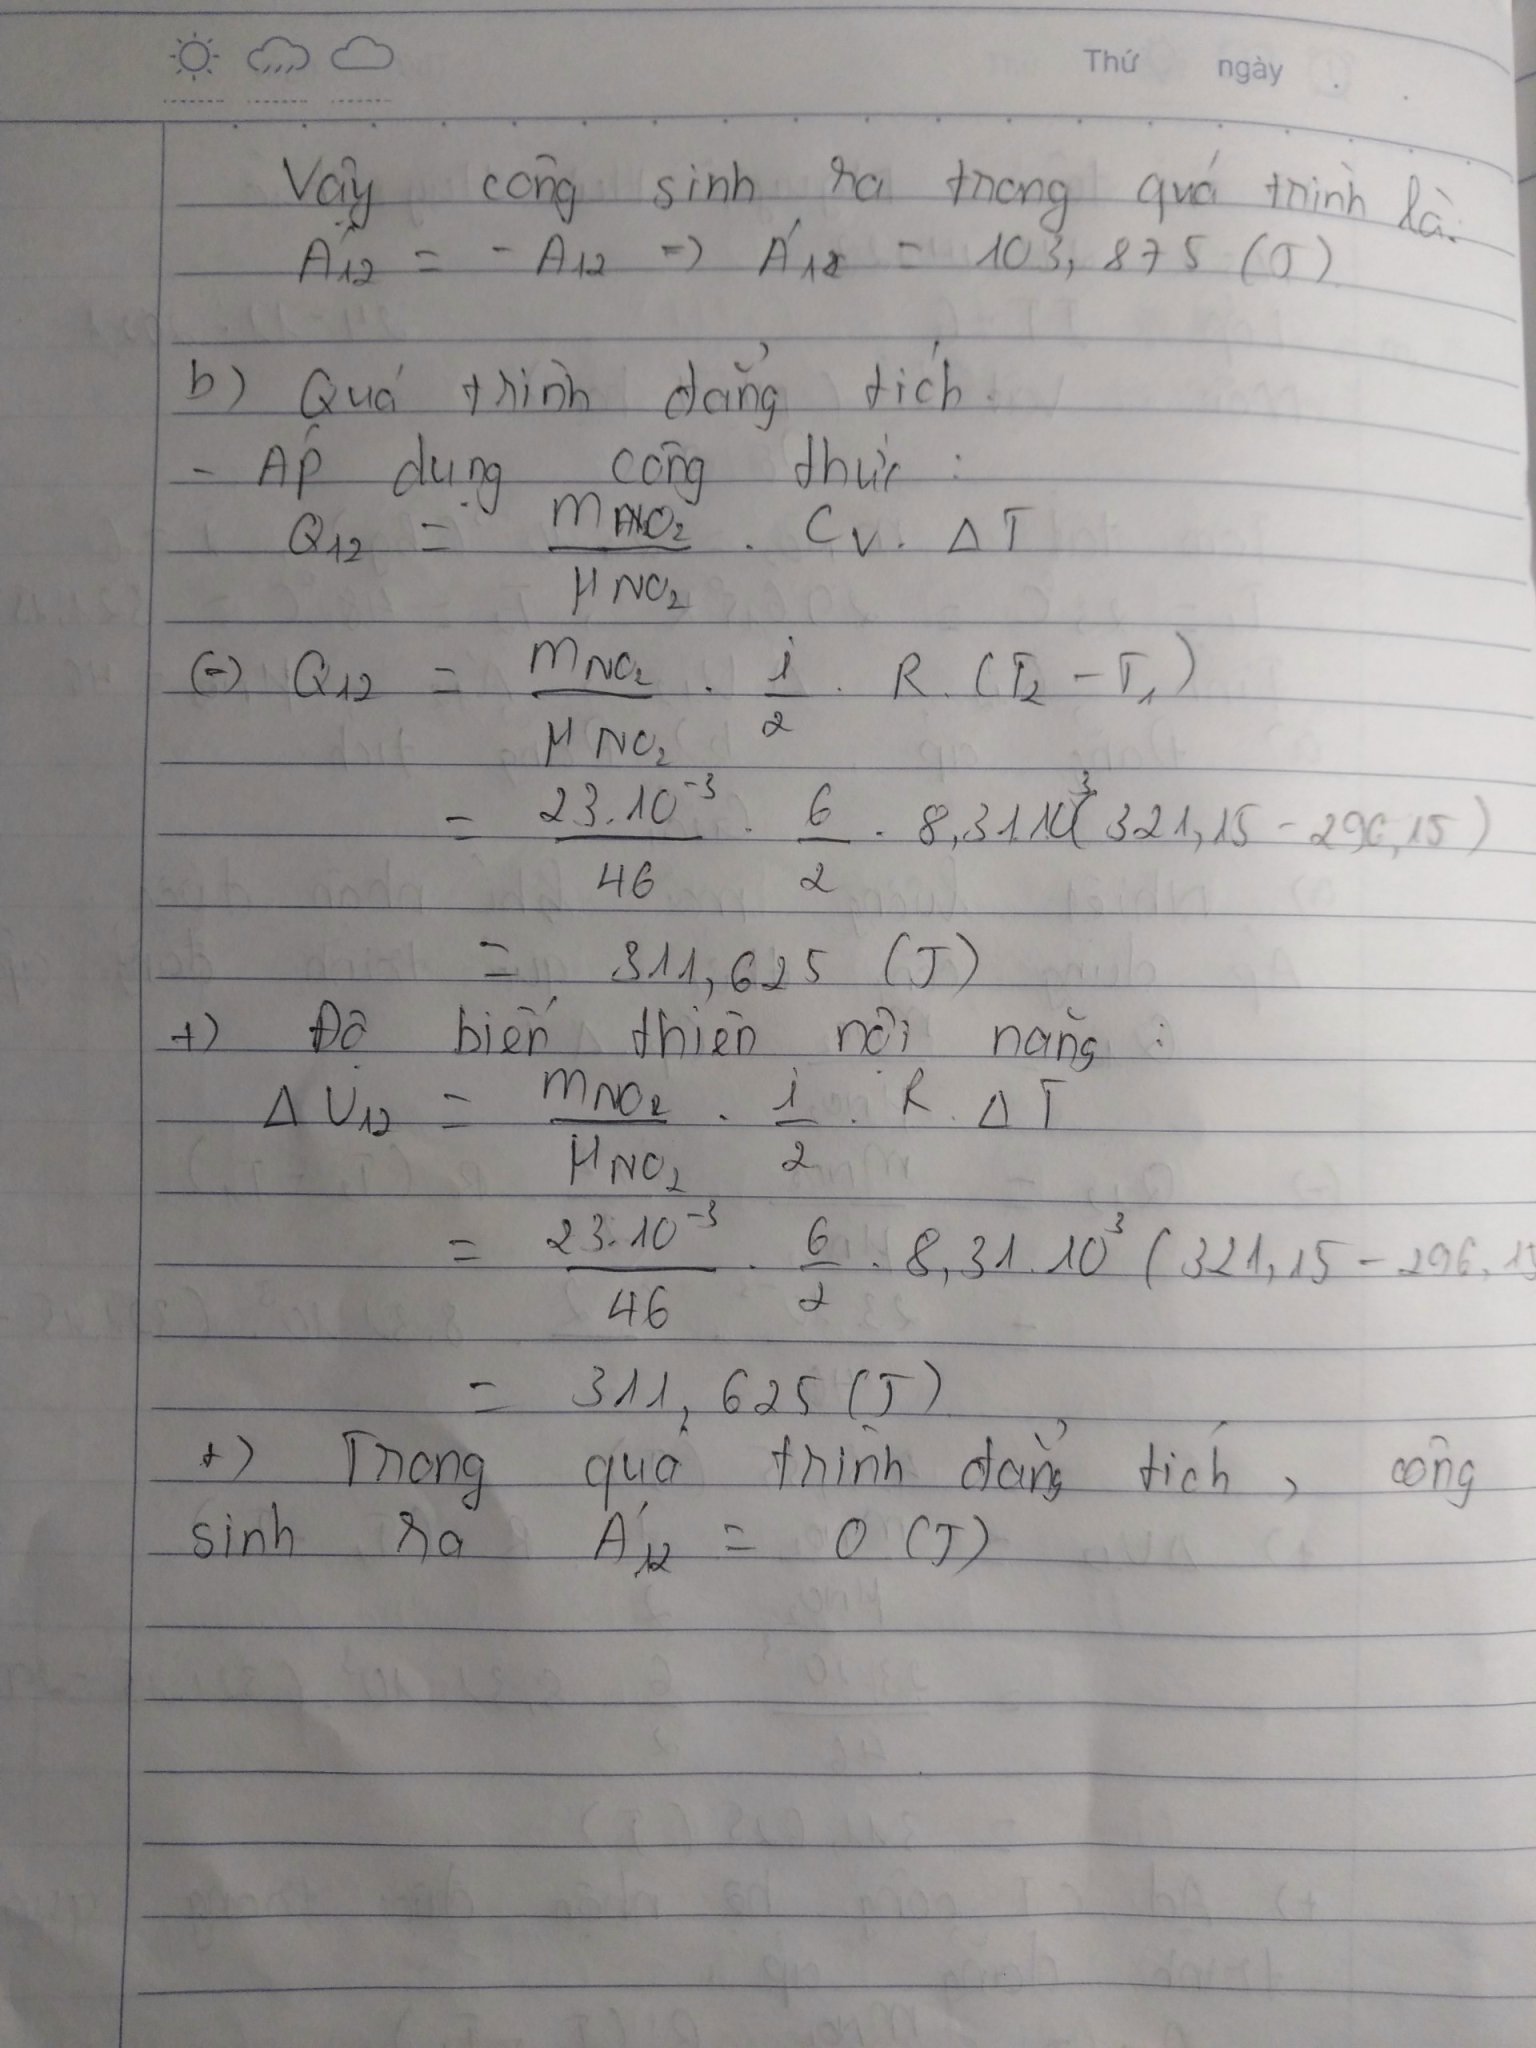 Thứ ngày
Vây công sinh ra trong quá trình là:
A'12 = - A12 => A'12 = 103,875 (J)
b) Quá trình đẳng tích
- Áp dụng công thức :
Q12 = mNO2 / μNO2 . Cv. ΔT
(=) Q12 = mNO2 / μNO2 . i/2 . R. (T2 - T1)
= 23.10^-3 / 46 . 6/2 . 8,31.10^3 (321,15 - 296,15)
= 311,625 (J)
+) Độ biến thiên nội năng :
ΔU12 = mNO2 / μNO2 . i/2 . R. ΔT
= 23.10^-3 / 46 . 6/2 . 8,31.10^3 (321,15 - 296,15
= 311,625 (J)
+) Trong quá trình đẳng tích, công
sinh ra A'12 = 0 (J)